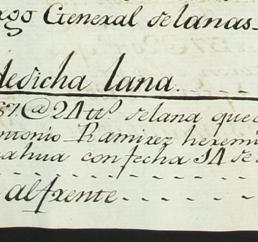 rgo General de lanas
de dicha lana.
57.@ 24 tt.º de lana que
Antonio Ramirez
ahua con fecha 14 de
al frente